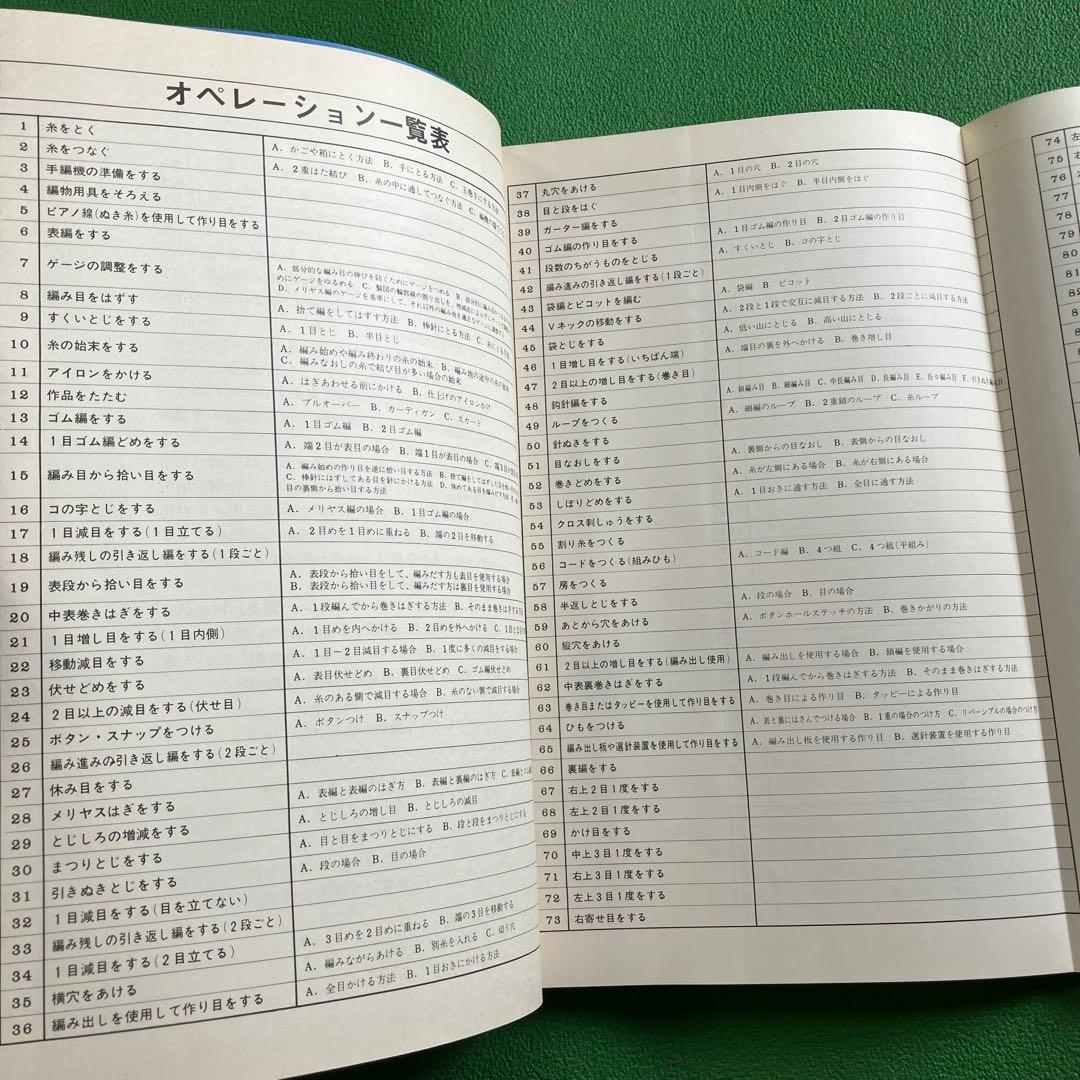 オペレーション一覧表
1 糸をとく A．かごや箱にとく方法 B．手にとる方法 C．玉巻きにする方法
2 糸をつなぐ A．2重はた結び B．糸の中に通してつなぐ方法 C．編機の
3 手編機の準備をする
4 編物用具をそろえる
5 ピアノ線(ぬき糸)を使用して作り目をする
6 表編をする
7 ゲージの調整をする A．部分的な編み目の伸びを防ぐためにゲージをつめる B．部分的に
めにゲージをゆるめる C．製図の輪郭線の割り出しを、増減法によらずに
D．メリヤス編のゲージを基準にして、それ以外の編み地を適正なゲージに調整する
8 編み目をはずす A．捨て編をしてはずす方法 B．棒針にとる方法 C．糸にとる方法
9 すくいとじをする A．1目とじ B．半目とじ
10 糸の始末をする A．編み始めや編み終わりの糸の始末 B．編み地の途中の糸の始末
C．編みなおしの糸で結び目が多い場合の始末
11 アイロンをかける A．はぎあわせる前にかける B．仕上げのアイロンかけ
12 作品をたたむ A．プルオーバー B．カーディガン C．スカート
13 ゴム編をする A．1目ゴム編 B．2目ゴム編
14 1目ゴム編どめをする A．端2目が表目の場合 B．端1目が表目の場合 C．端3目が
15 編み目から拾い目をする A．編み始めの作り目を逆に拾い目する方法 B．捨て編をしてはずした目を
C．棒針にはずしてある目を針にかける方法 D．休めてある目を編みだす方法 E．
目の裏側から拾い目する方法
16 コの字とじをする A．メリヤス編の場合 B．1目ゴム編の場合
17 1目減目をする(1目立てる) A．2目めを1目めに重ねる B．端の2目を移動する
18 編み残しの引き返し編をする(1段ごと)
19 表段から拾い目をする A．表段から拾い目をして、編みだす方も表目を使用する場合
B．表段から拾い目をして、編みだす方は裏目を使用する場合
20 中表巻きはぎをする A．1段編んでから巻きはぎする方法 B．そのまま巻きはぎする方法
21 1目増し目をする(1目内側) A．1目めを内へかける B．2目めを外へかける C．1目と2
22 移動減目をする A．1目～2目減目する場合 B．1度に多くの減目をする場合
23 伏せどめをする A．表目伏せどめ B．裏目伏せどめ C．ゴム編伏せどめ
24 2目以上の減目をする(伏せ目) A．糸のある側で減目する場合 B．糸のない側で減目する場合
25 ボタン・スナップをつける A．ボタンつけ B．スナップつけ
26 編み進みの引き返し編をする(2段ごと)
27 休み目をする
28 メリヤスはぎをする A．表編と表編のはぎ方 B．表編と裏編のはぎ方 C．
29 とじしろの増減をする A．とじしろの増し目 B．とじしろの減目
30 まつりとじをする A．目と目をまつりとじにする B．段と段をまつりとじにする
31 引きぬきとじをする A．段の場合 B．目の場合
32 1目減目をする(目を立てない)
33 編み残しの引き返し編をする(2段ごと)
34 1目減目をする(2目立てる) A．3目めを2目めに重ねる B．端の3目を移動する
35 横穴をあける A．編みながらあける B．別糸を入れる C．切り穴
36 編み出しを使用して作り目をする A．全目かける方法 B．1目おきにかける方法
37 丸穴をあける A．1目の穴 B．2目の穴
38 目と段をはぐ A．1目内側をはぐ B．半目内側をはぐ
39 ガーター編をする
40 ゴム編の作り目をする A．1目ゴム編の作り目 B．2目ゴム編の作り目
41 段数のちがうものをとじる A．すくいとじ B．コの字とじ
42 編み進みの引き返し編をする(1段ごと)
43 袋編とピコットを編む A．袋編 B ピコット
44 Vネックの移動をする A．2段と1段で交互に減目する方法 B．2段ごとに減目する方法
45 袋とじをする A．低い山にとじる B．高い山にとじる
46 1目増し目をする(いちばん端) A．端目の裏を外へかける B．巻き増し目
47 2目以上の増し目をする(巻き目)
48 鈎針編をする A．鎖編み目 B．細編み目 C．中長編み目 D．長編み目 E．長々編み目 F．引きぬき編み目
49 ループをつくる A．細編のループ B．2重鎖のループ C．糸ループ
50 針ぬきをする
51 目なおしをする A．裏側からの目なおし B．表側からの目なおし
52 巻きどめをする A．糸が左側にある場合 B．糸が右側にある場合
53 しぼりどめをする A．1目おきに通す方法 B．全目に通す方法
54 クロス刺しゅうをする
55 割り糸をつくる
56 コードをつくる(組みひも) A．コード編 B．4つ組 C．4つ組(平組み)
57 房をつくる
58 半返しとじをする A．段の場合 B．目の場合
59 あとから穴をあける A．ボタンホールステッチの方法 B．巻きかがりの方法
60 縦穴をあける
61 2目以上の増し目をする(編み出し使用) A．編み出しを使用する場合 B．鎖編を使用する場合
62 中表裏巻きはぎをする A．1段編んでから巻きはぎする方法 B．そのまま巻きはぎする方法
63 巻き目またはタッピーを使用して作り目をする A．巻き目による作り目 B．タッピーによる作り目
64 ひもをつける A．表と裏にはさんでつける場合 B．1重の場合のつけ方 C．リバーシブルの場合のつけ方
65 編み出し板や選針装置を使用して作り目をする A．編み出し板を使用する作り目 B．選針装置を使用する作り目
66 裏編をする
67 右上2目1度をする
68 左上2目1度をする
69 かけ目をする
70 中上3目1度をする
71 右上3目1度をする
72 左上3目1度をする
73 右寄せ目をする
74 左
75 右
76
77
78
79
80
81
82